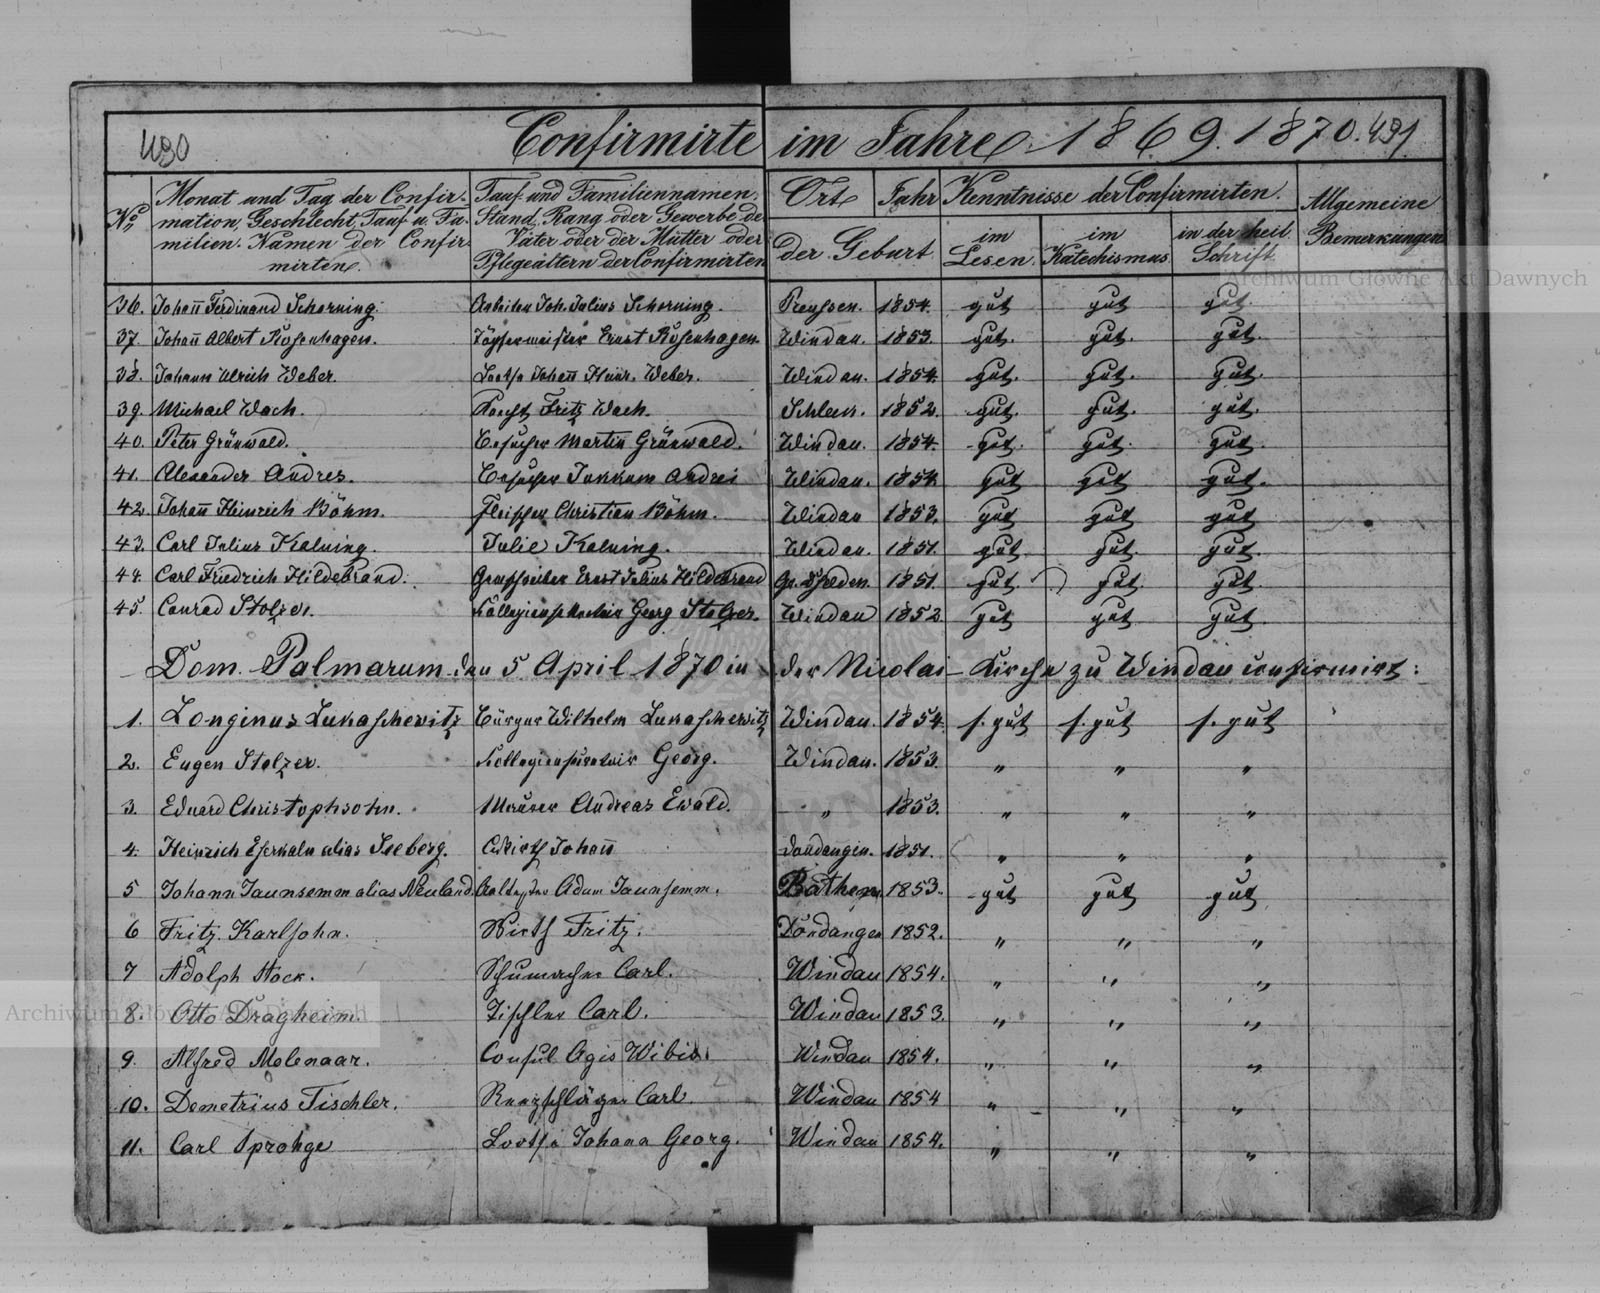 490
Confirmirte im Jahre 1869. 1870. 491
No
Monat und Tag der Confir-
mation, Geschlecht, Tauf u. Fa-
milien Namen der Confir-
mirten.
Tauf und Familiennamen,
Stand, Rang oder Gewerbe der
Väter oder der Mütter oder
Pflegeältern der Confirmirten
Ort Jahr
der Geburt
Kenntnisse der Confirmirten.
im
Lesen.
im
Katechismus
in der heil.
Schrift
Allgemeine
Bemerkungen
36. Johañ Ferdinand Schorning. Arbeiter Joh. Julius Schorning. Preussen. 1854. gut gut gut
37. Johañ Albert Rosenhagen. Töpfermeister Ernst Rosenhagen Windau. 1853. gut. gut. gut.
38. Johann Ulrich Weber. Lootse Johañ Heinr. Weber. Windau. 1854. gut. gut. gut.
39. Michael Wach. Knecht Fritz Wach. Schleck. 1852. gut. gut. gut.
40. Peter Grünwald. Besucher Martin Grünwald. Windau. 1854. gut. gut. gut.
41. Alexander Andres. Besucher Andrei Windau. 1854. gut gut gut.
42. Johañ Heinrich Böhm. Fleischer Christian Böhm. Windau 1853. gut gut gut
43. Carl Julius Kalning. Julie Kalning. Windau. 1851. gut gut. gut.
44. Carl Friedrich Hildebrand. Ernst Julius Hildebrand Gr. 1851. gut gut gut.
45. Conrad Stolzer. Kollegiensekretair Georg Stolzer. Windau 1852 gut gut gut.
Dom. Palmarum den 5 April 1870 in der Nicolai-Kirche zu Windau confirmirt:
1. Longinus Lukaschewitz Bürger Wilhelm Lukaschewitz Windau. 1854. s. gut s. gut s. gut
2. Eugen Stolzer. Kollegiensecretair Georg. Windau. 1853. " " "
3. Eduard Christophsohn. Maurer Andreas Ewald. " 1853. " " "
4. Heinrich alias Seeberg. Wirth Johañ Dondangen. 1851. " " "
5 Johann Jaunsemm alias Neuland. Adam Jaunsemm. Bathen 1853. gut gut gut
6 Fritz Karlsohn. Wirth Fritz. Dondangen 1852. " " "
7 Adolph Stock. Schumacher Carl. Windau 1854. " " "
8. Otto Dragheim. Tischler Carl. Windau 1853. " " "
9. Alfred Molenaar. Consul Agis Windau 1854. " " "
10. Demetrius Tischler. Reepschläger Carl Windau 1854 " " "
11. Carl Sprohge Lootse Johann Georg. Windau 1854. " " "
Archiwum Główne Akt Dawnych
Archiwum Główne Akt Dawnych